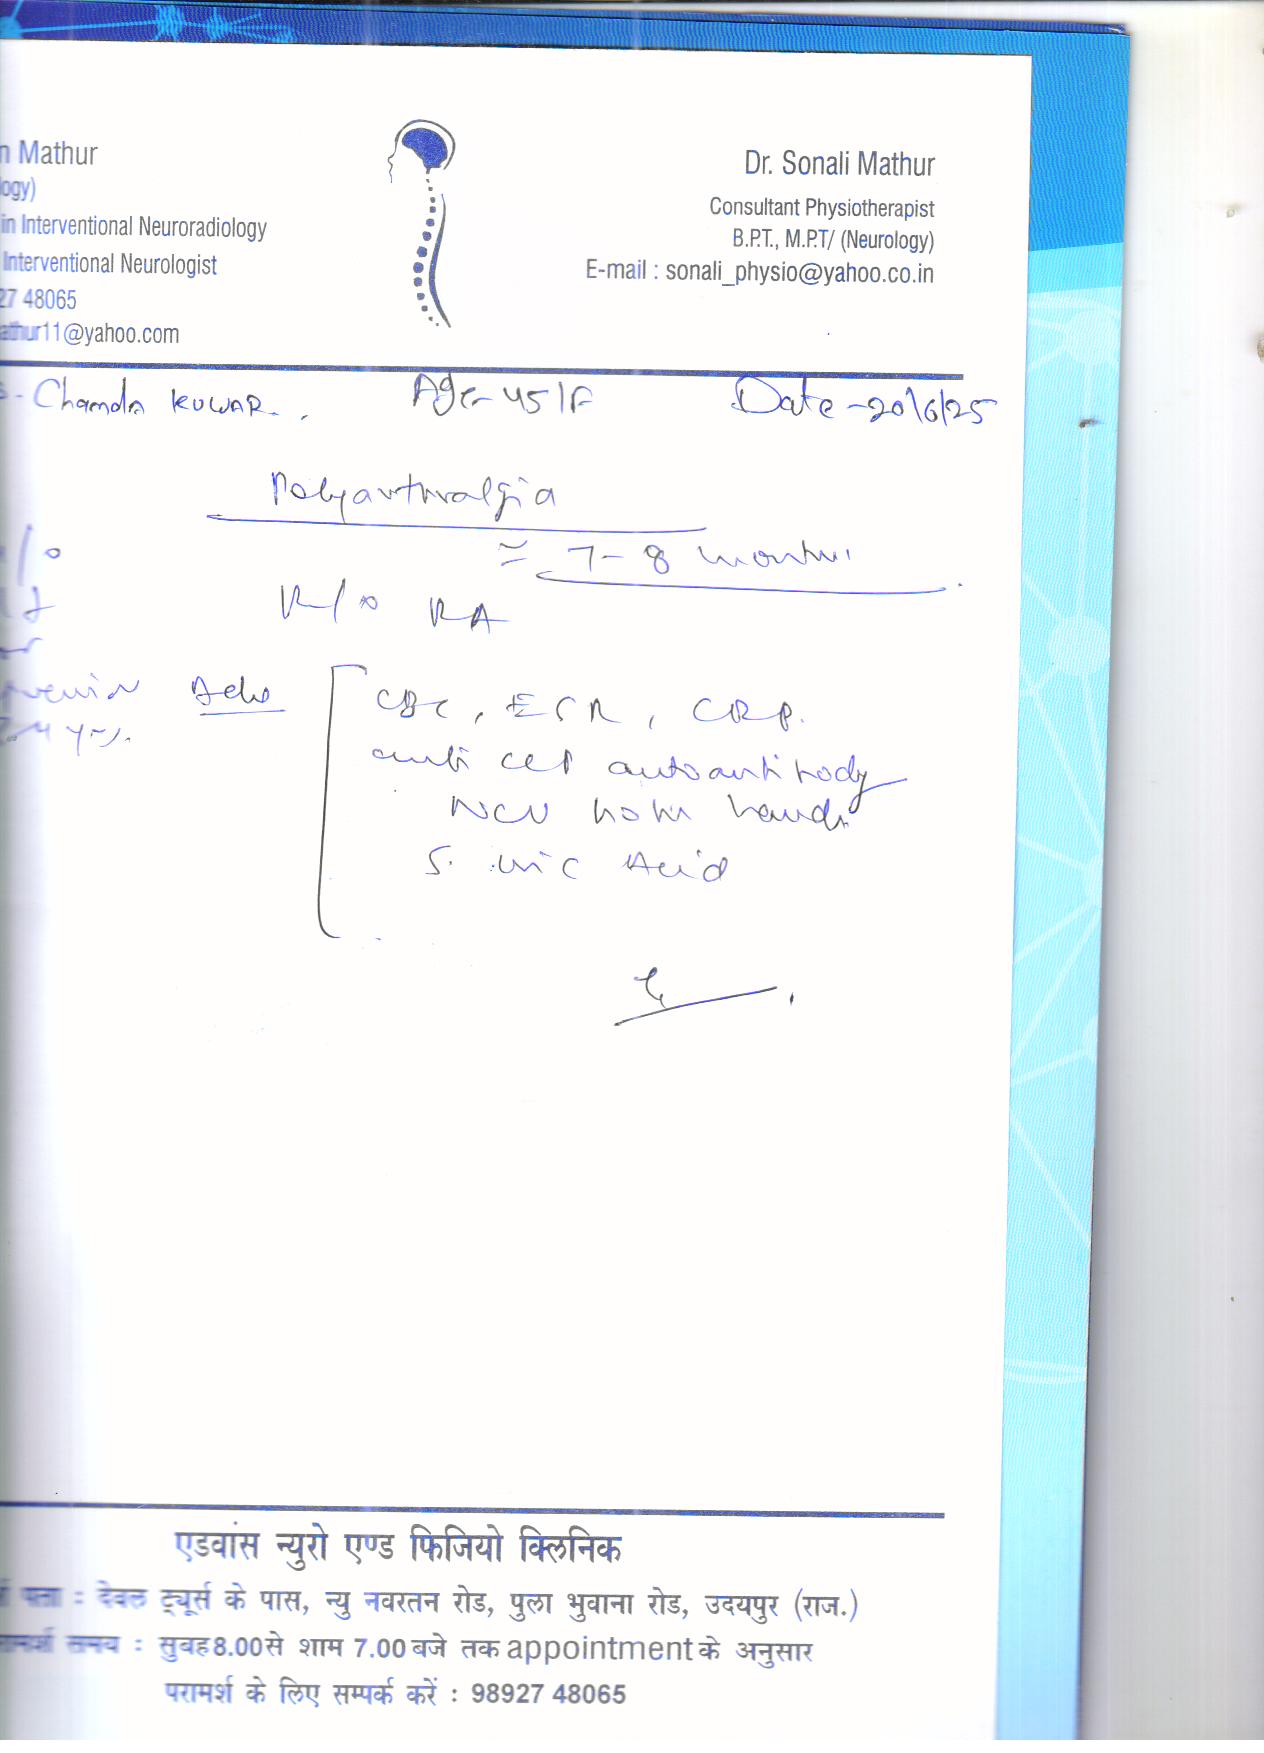 n Mathur
ogy)
in Interventional Neuroradiology
Interventional Neurologist
27 48065
athur11@yahoo.com
Dr. Sonali Mathur
Consultant Physiotherapist
B.P.T., M.P.T/ (Neurology)
E-mail : sonali_physio@yahoo.co.in
s- Chanda KUWAR. Age- 45/F Date - 20/6/25
Polyarthralgia
≃ 7-8 months
R/o RA
/o
Adv
CBC, ESR, CRP.
anti CCP autoantibody
NCV both hands
S. uric Acid
4 yrs.
एडवांस न्युरो एण्ड फिजियो क्लिनिक
पता : देवल ट्यूर्स के पास, न्यु नवरतन रोड, पुला भुवाना रोड, उदयपुर (राज.)
समय : सुबह 8.00 से शाम 7.00 बजे तक appointment के अनुसार
परामर्श के लिए सम्पर्क करें : 98927 48065